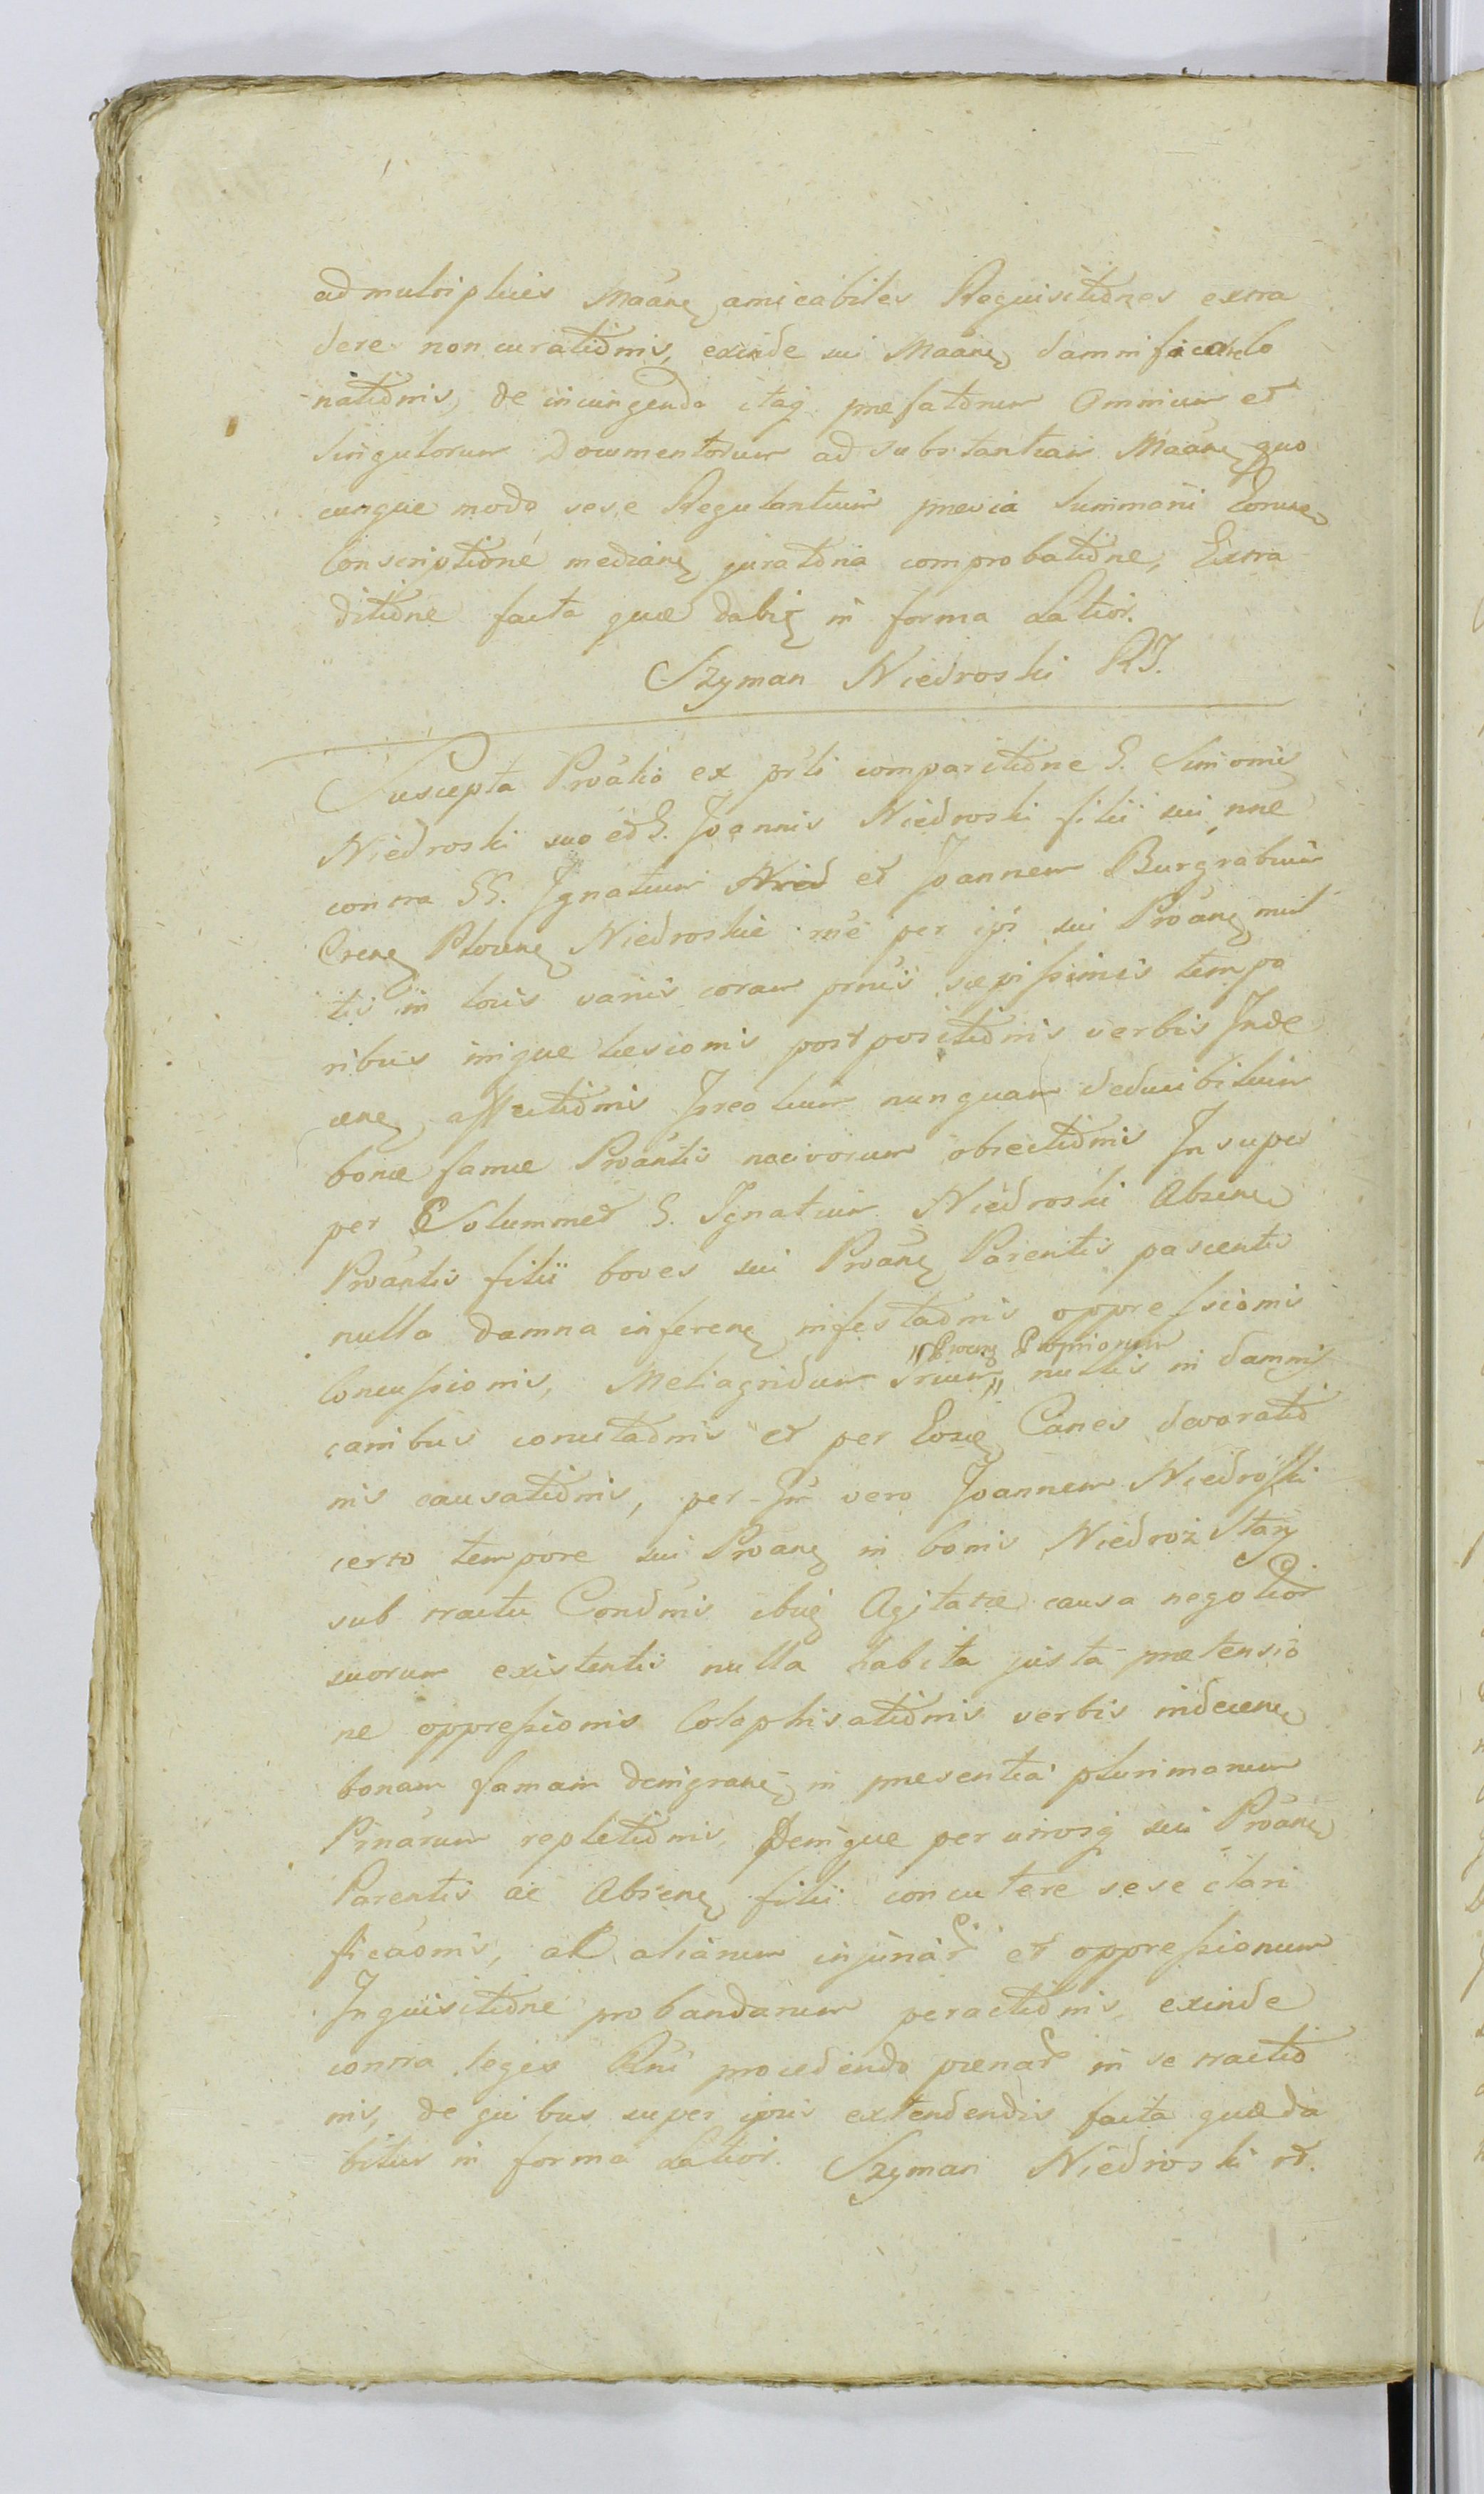 ad multiplices Maāne amicabiles Requisitiōnes extra
dere non curatiōnis, exinde sui Maāne damnificatiō
nis de iniungenda itaq praefatōrum Omnium et
singulorum Documentorum ad substantiam Maāne quo
cunque modo sese Regulantium praevia Summarii Eorund
Conscriptiōne mediane juratōria comprobatiōne, Extra
ditiōne facta quae dabiʒ in forma Latior.
Szyman Niedroski RJ.
Suscepta Proātio ex prti comparitiōne G. Simonis
Niedroski suo et G. Joannis Niedroski filii sui nne
contra GG. Ignatium et Joannem Burgrabium
Crene Plocene Niedroskie rñe per ipš sui Proāne mul
tis in locis variis coram prnis saepissimis tempo
ribus inique laesionis postpositiōnis verbis Inde
cene affectiōnis Ireo lium nunquam deducibilium
bonae famae Proāntis nocivorum obiectiōnis Insuper
per Solummet G. Ignatium Niedroski Absene
Proāntis filii boves sui Proāne Parentis pascentis
nulla damna inferene infestaōnis oppressionis
Concussionis, Meliagridum trium „Proene Propriorum„ nullis in damnis
canibus concitaōnis et per Eosce Canes devoratiō
nis causatiōnis, per Jñ vero Joannem Niedroski
certo tempore sui Proāne in bonis Niedroż Stary
sub tractu Condnis ibiʒ Agitatae causa negotior
suorum existentis nulla habita justa praetensio
ne oppressionis Colaphisatiōnis verbis indecene
bonam famam denigrane in praesentia plurimarum
Prnarum repletiōnis Denique per utrosq sui Proāne
Parentis ac Absene filii concutere sese clari
ficaōnis, al aliarum injuriar et oppressionum
Inquisitiōne probandarum peractiōnis, exinde
contra leges Rni procedendo paenar in se tractiō
nis, de quibus super ipsis extendendis facta quae da
bitur in forma Latior. Szyman Niedroski rd.